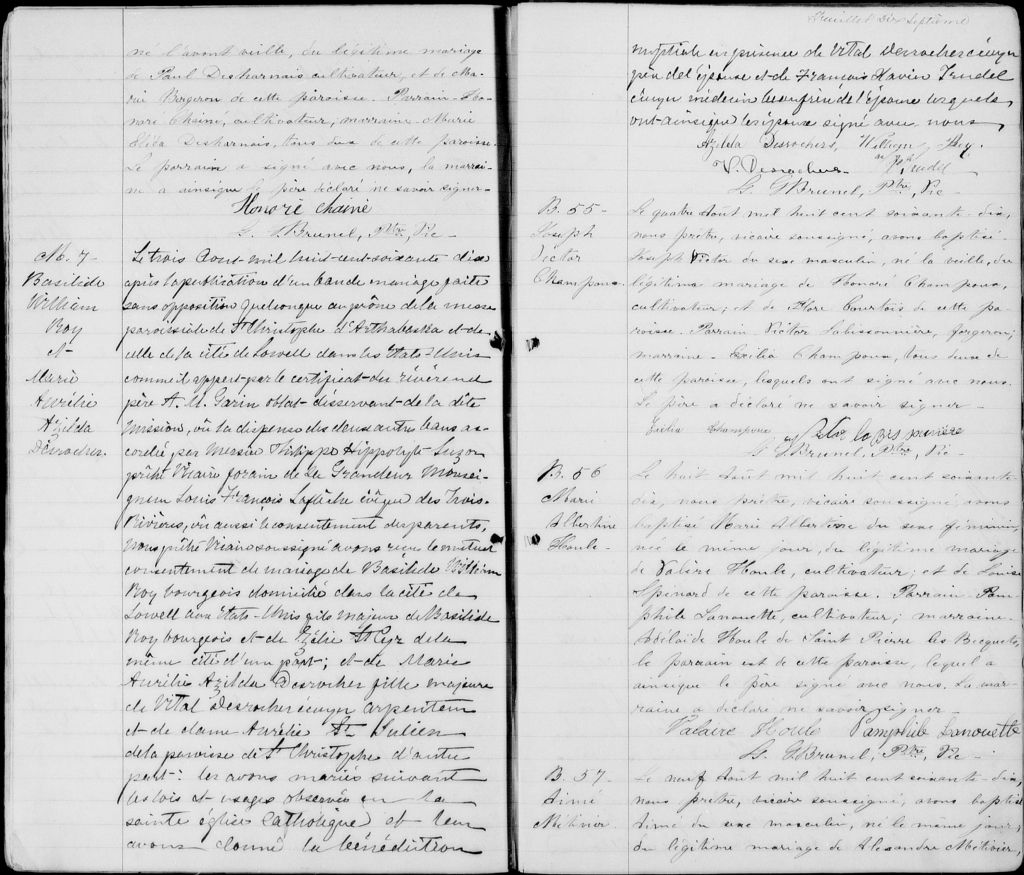 né l'avant veille, du légitime mariage
de Paul Desharnais cultivateur, et de Ma-
rie Bergeron de cette paroisse. Parrain - Ho-
noré Chainé, cultivateur; marraine - Marie
Eléda Desharnais, tous deux de cette paroisse.
Le parrain a signé avec nous, la marrai-
ne a ainsique le père déclaré ne savoir signer -
Honoré Chainé
L. G. Brunel, Ptre, Vic -
M. 7 -
Basilide
William
Roy
et
Marie
Aurélie
Azilda
Desrochers.
Le trois Aout mil huit-cent-soixante dix
après la publication d'un ban de mariage faite
sans opposition quelconque au prône de la messe
paroissiale de St Christophe d'Arthabaska et de
celle de la cité de Lowell dans les Etats-Unis
comme il appert par le certificat du révérend
père A. M. Garin oblat desservant de la dite
mission, vû la dispense des deux autres bans ac-
cordée, par Messire Philippe Hippolyte Suzor
prêtre Vicaire forain de Sa Grandeur Monsei-
gneur Louis François Laflèche évêque des Trois-
Rivières, vû aussi le consentement des parents,
Nous prêtre Vicaire soussigné avons reçu le mutuel
consentement de mariage de Basilide William
Roy bourgeois domicilié dans la cité de
Lowell aux États-Unis fils majeur de Basilide
Roy bourgeois et de St Cyr de la
même cité d'une part; et de Marie
Aurélie Azilda Desrocher fille majeure
de Vital Desrocher écuyer arpenteur
et de dame Aurélie St Julien
de la paroisse de St Christophe d'autre
part: les avons mariés suivant
les lois et usages observés en la
sainte église Catholique et leur
avons donné la bénédiction
Feuillet Dix Septième
nuptiale en présence de Vital Desrochers écuyer
père de l'Épouse et de François Xavier Trudel
écuyer médecin beaufrère de l'Épouse lesquels
ont ainsique les époux signé avec nous,
Azilda Desrochers, William Roy.
V. Desrochers Trudel
L. G. Brunel, Ptre, Vic -
B. 55 -
Joseph
Victor
Champoux
Le quatre Aout mil huit cent soixante-dix,
nous prêtre, vicaire soussigné, avons baptisé
Joseph Victor du sexe masculin, né la veille, du
légitime mariage de Honoré Champoux,
cultivateur; et de Flore Courtois de cette pa-
roisse. Parrain Victor Labissonnière, forgeron;
marraine - Exilia Champoux, tous deux de
cette paroisse, lesquels ont signé avec nous.
Le père a déclaré ne savoir signer -
Exilia Champoux
L. G. Brunel, Ptre, Vic -
B. 56
Marie
Albertine
Houle -
Le huit Aout mil huit cent soixante-
dix, nous prêtre, vicaire soussigné, avons
baptisé Marie Albertine du sexe féminin,
née le même jour, du légitime mariage
de Valère Houle, cultivateur; et de Louise
Spénard de cette paroisse. Parrain - Pam-
phile Lanouette, cultivateur; marraine -
Adélaïde Houle de Saint Pierre les Becquets,
le parrain est de cette paroisse, lequel a
ainsique le père signé avec nous. La mar-
raine a déclaré ne savoir signer -
Valaire Houle Pamphile Lanouette
L. G. Brunel, Ptre, Vic -
B. 57 -
Aimé
Métivier.
Le neuf Aout mil huit cent soixante-dix,
nous prêtre, vicaire soussigné, avons baptisé
Aimé du sexe masculin, né le même jour,
du légitime mariage de Alexandre Métivier,